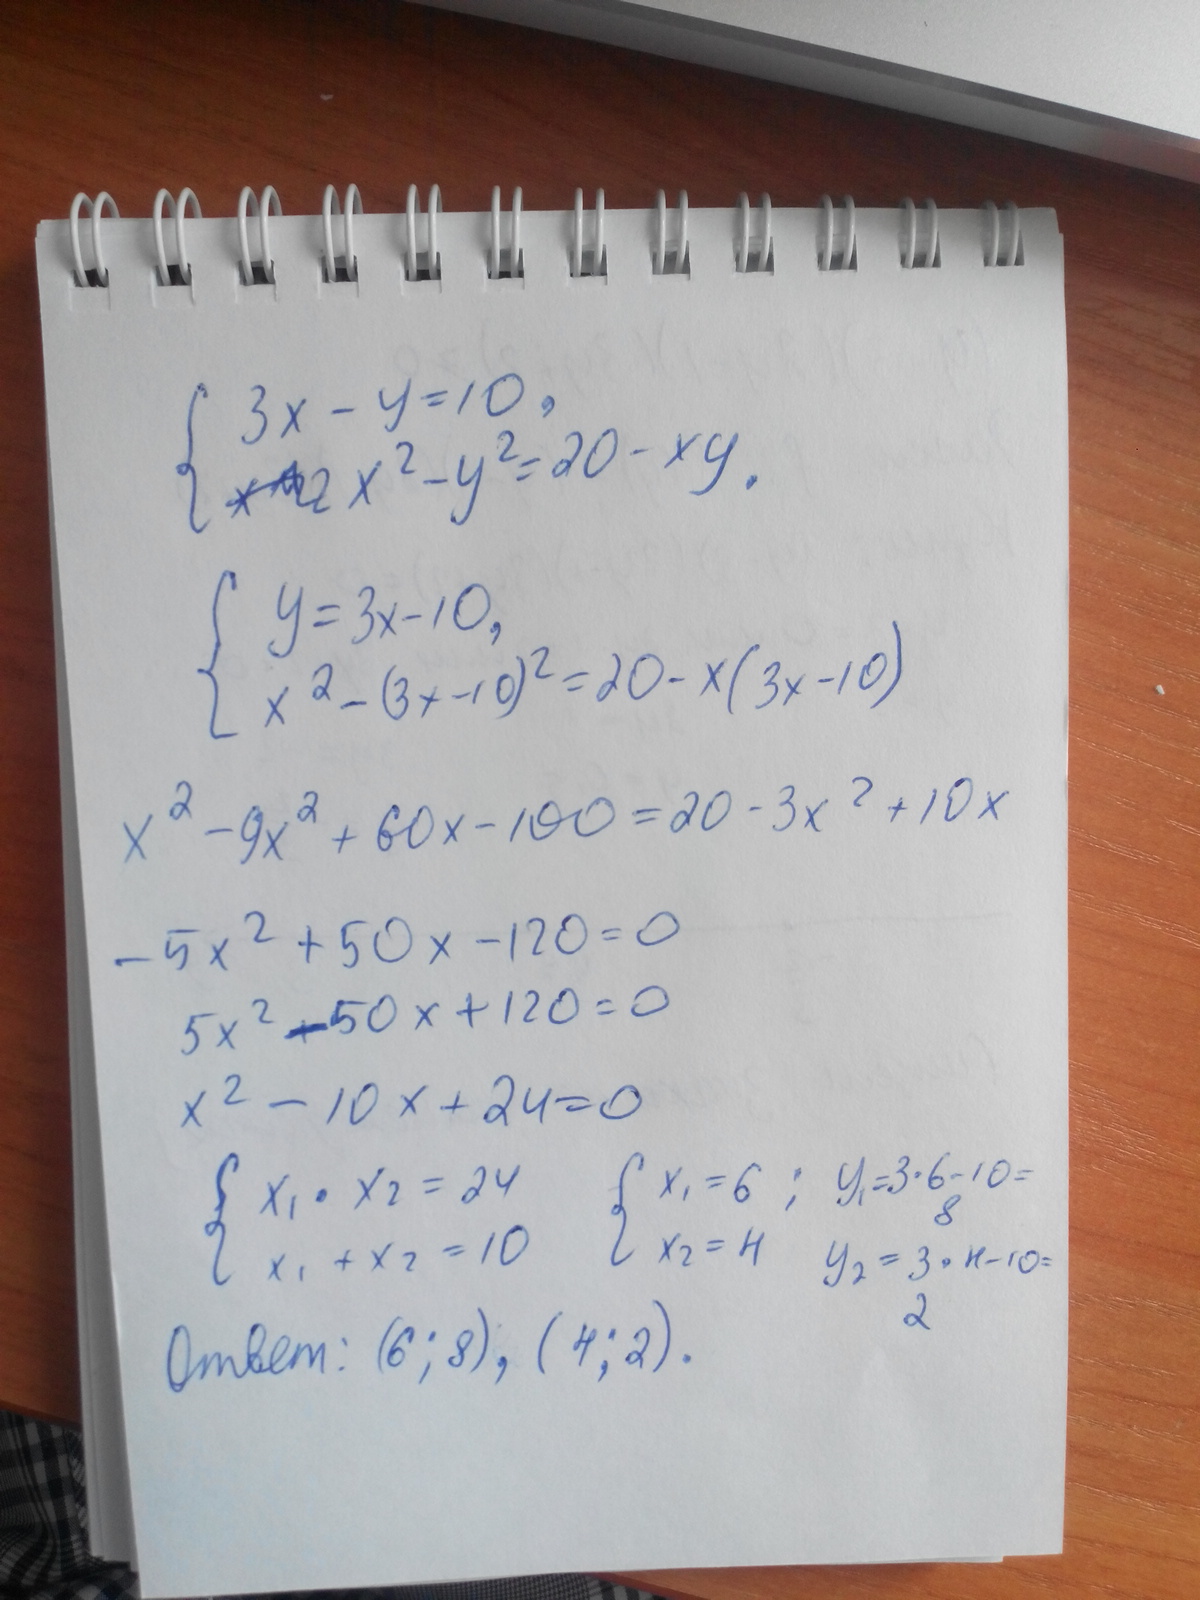 { 3x - y = 10,
x² - y² = 20 - xy.
{ y = 3x - 10,
x² - (3x - 10)² = 20 - x(3x - 10)
x² - 9x² + 60x - 100 = 20 - 3x² + 10x
-5x² + 50x - 120 = 0
5x² - 50x + 120 = 0
x² - 10x + 24 = 0
{ x₁ · x₂ = 24 { x₁ = 6 ; y₁ = 3·6 - 10 =
8
x₁ + x₂ = 10 x₂ = 4 y₂ = 3·4 - 10 =
2
Ответ: (6; 8), (4; 2).